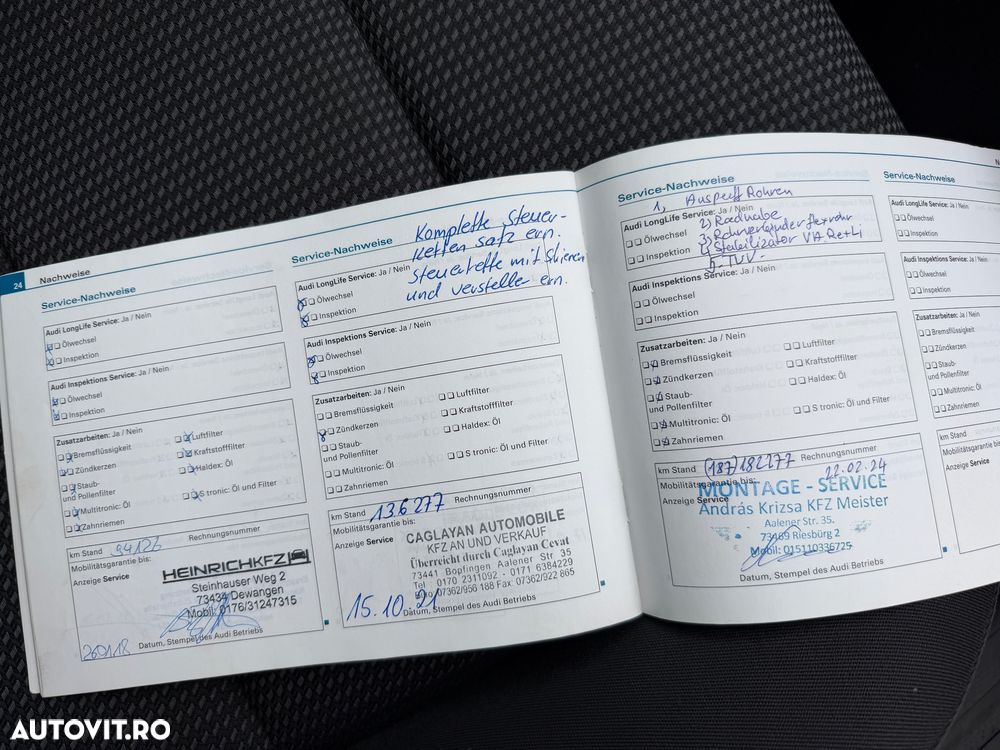 24
Nachweise
Service-Nachweise
Audi LongLife Service: Ja / Nein
Ölwechsel
Inspektion
Audi Inspektions Service: Ja / Nein
Ölwechsel
Inspektion
Zusatzarbeiten: Ja / Nein
Bremsflüssigkeit
Luftfilter
Zündkerzen
Kraftstofffilter
Staub-
und Pollenfilter
Haldex: Öl
Multitronic: Öl
S tronic: Öl und Filter
Zahnriemen
km Stand 94126 Rechnungsnummer
Mobilitätsgarantie bis:
Anzeige Service
HEINRICHKFZ
Steinhauser Weg 2
73434 Dewangen
Mobil: 0176/31247315
Datum, Stempel des Audi Betriebs
Service-Nachweise
Komplette Steuer-
ketten satz ern.
Steuerkette mit slienen
und versteller ern.
Audi LongLife Service: Ja / Nein
Ölwechsel
Inspektion
Audi Inspektions Service: Ja / Nein
Ölwechsel
Inspektion
Zusatzarbeiten: Ja / Nein
Bremsflüssigkeit
Luftfilter
Zündkerzen
Kraftstofffilter
Staub-
und Pollenfilter
Haldex: Öl
Multitronic: Öl
S tronic: Öl und Filter
Zahnriemen
km Stand 136277 Rechnungsnummer
Mobilitätsgarantie bis:
Anzeige Service
CAGLAYAN AUTOMOBILE
KFZ AN UND VERKAUF
Überreicht durch Caglayan Cevat
73441 Bopfingen Aalener Str 35
Tel 0170 2311092 - 0171 6384229
Büro 07362/956 188 Fax: 07362/922 865
15.10.21
Datum, Stempel des Audi Betriebs
Service-Nachweise
1, Auspuff Rohren
Audi LongLife Service: Ja / Nein
2) Radnabe
Ölwechsel
Inspektion
4) Stabilizator VA Re+Li
5. TÜV-
Audi Inspektions Service: Ja / Nein
Ölwechsel
Inspektion
Zusatzarbeiten: Ja / Nein
Bremsflüssigkeit
Luftfilter
Zündkerzen
Kraftstofffilter
Staub-
und Pollenfilter
Haldex: Öl
Multitronic: Öl
S tronic: Öl und Filter
Zahnriemen
km Stand (187) 182277 Rechnungsnummer
Mobilitätsgarantie bis: 22.02.24
Anzeige Service
MONTAGE - SERVICE
András Krizsa KFZ Meister
Aalener Str. 35.
73469 Riesbürg 2
Mobil: 015110336725
Datum, Stempel des Audi Betriebs
Service-Nachweise
Audi LongLife Service: Ja / Nein
Ölwechsel
Inspektion
Ölwechsel
Inspektion
Zusatzarbeiten: Ja / Nein
Bremsflüssigkeit
Zündkerzen
Staub-
und Pollenfilter
Multitronic: Öl
Zahnriemen
km Stand
Anzeige Service
AUTOVIT.RO